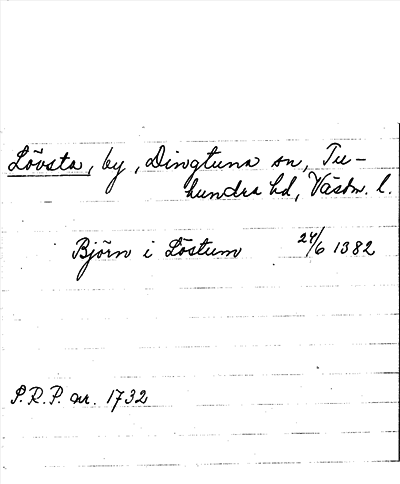 Lövsta, by, Dingtuna sn, Tu-
hundra hd, Västm. l.
Björn i Löstum 24/6 1382
P.R.P. nr. 1732